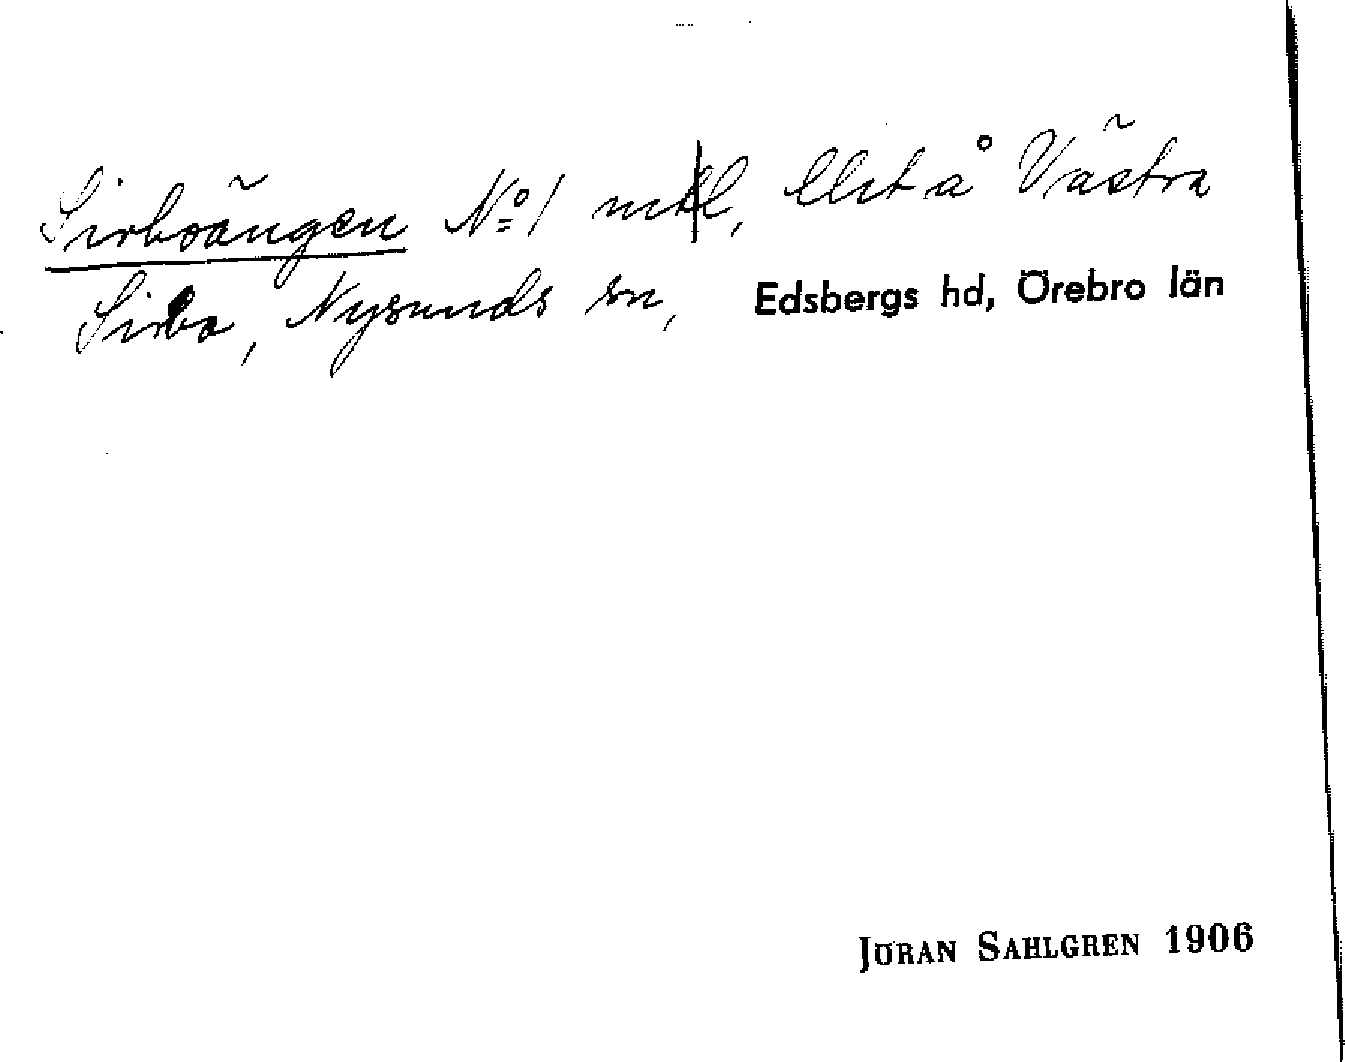 Sirboängen No 1 mtl, Utå Västra
Sirbo, Nysunds sn, Edsbergs hd, Örebro län
JÖRAN SAHLGREN 1906